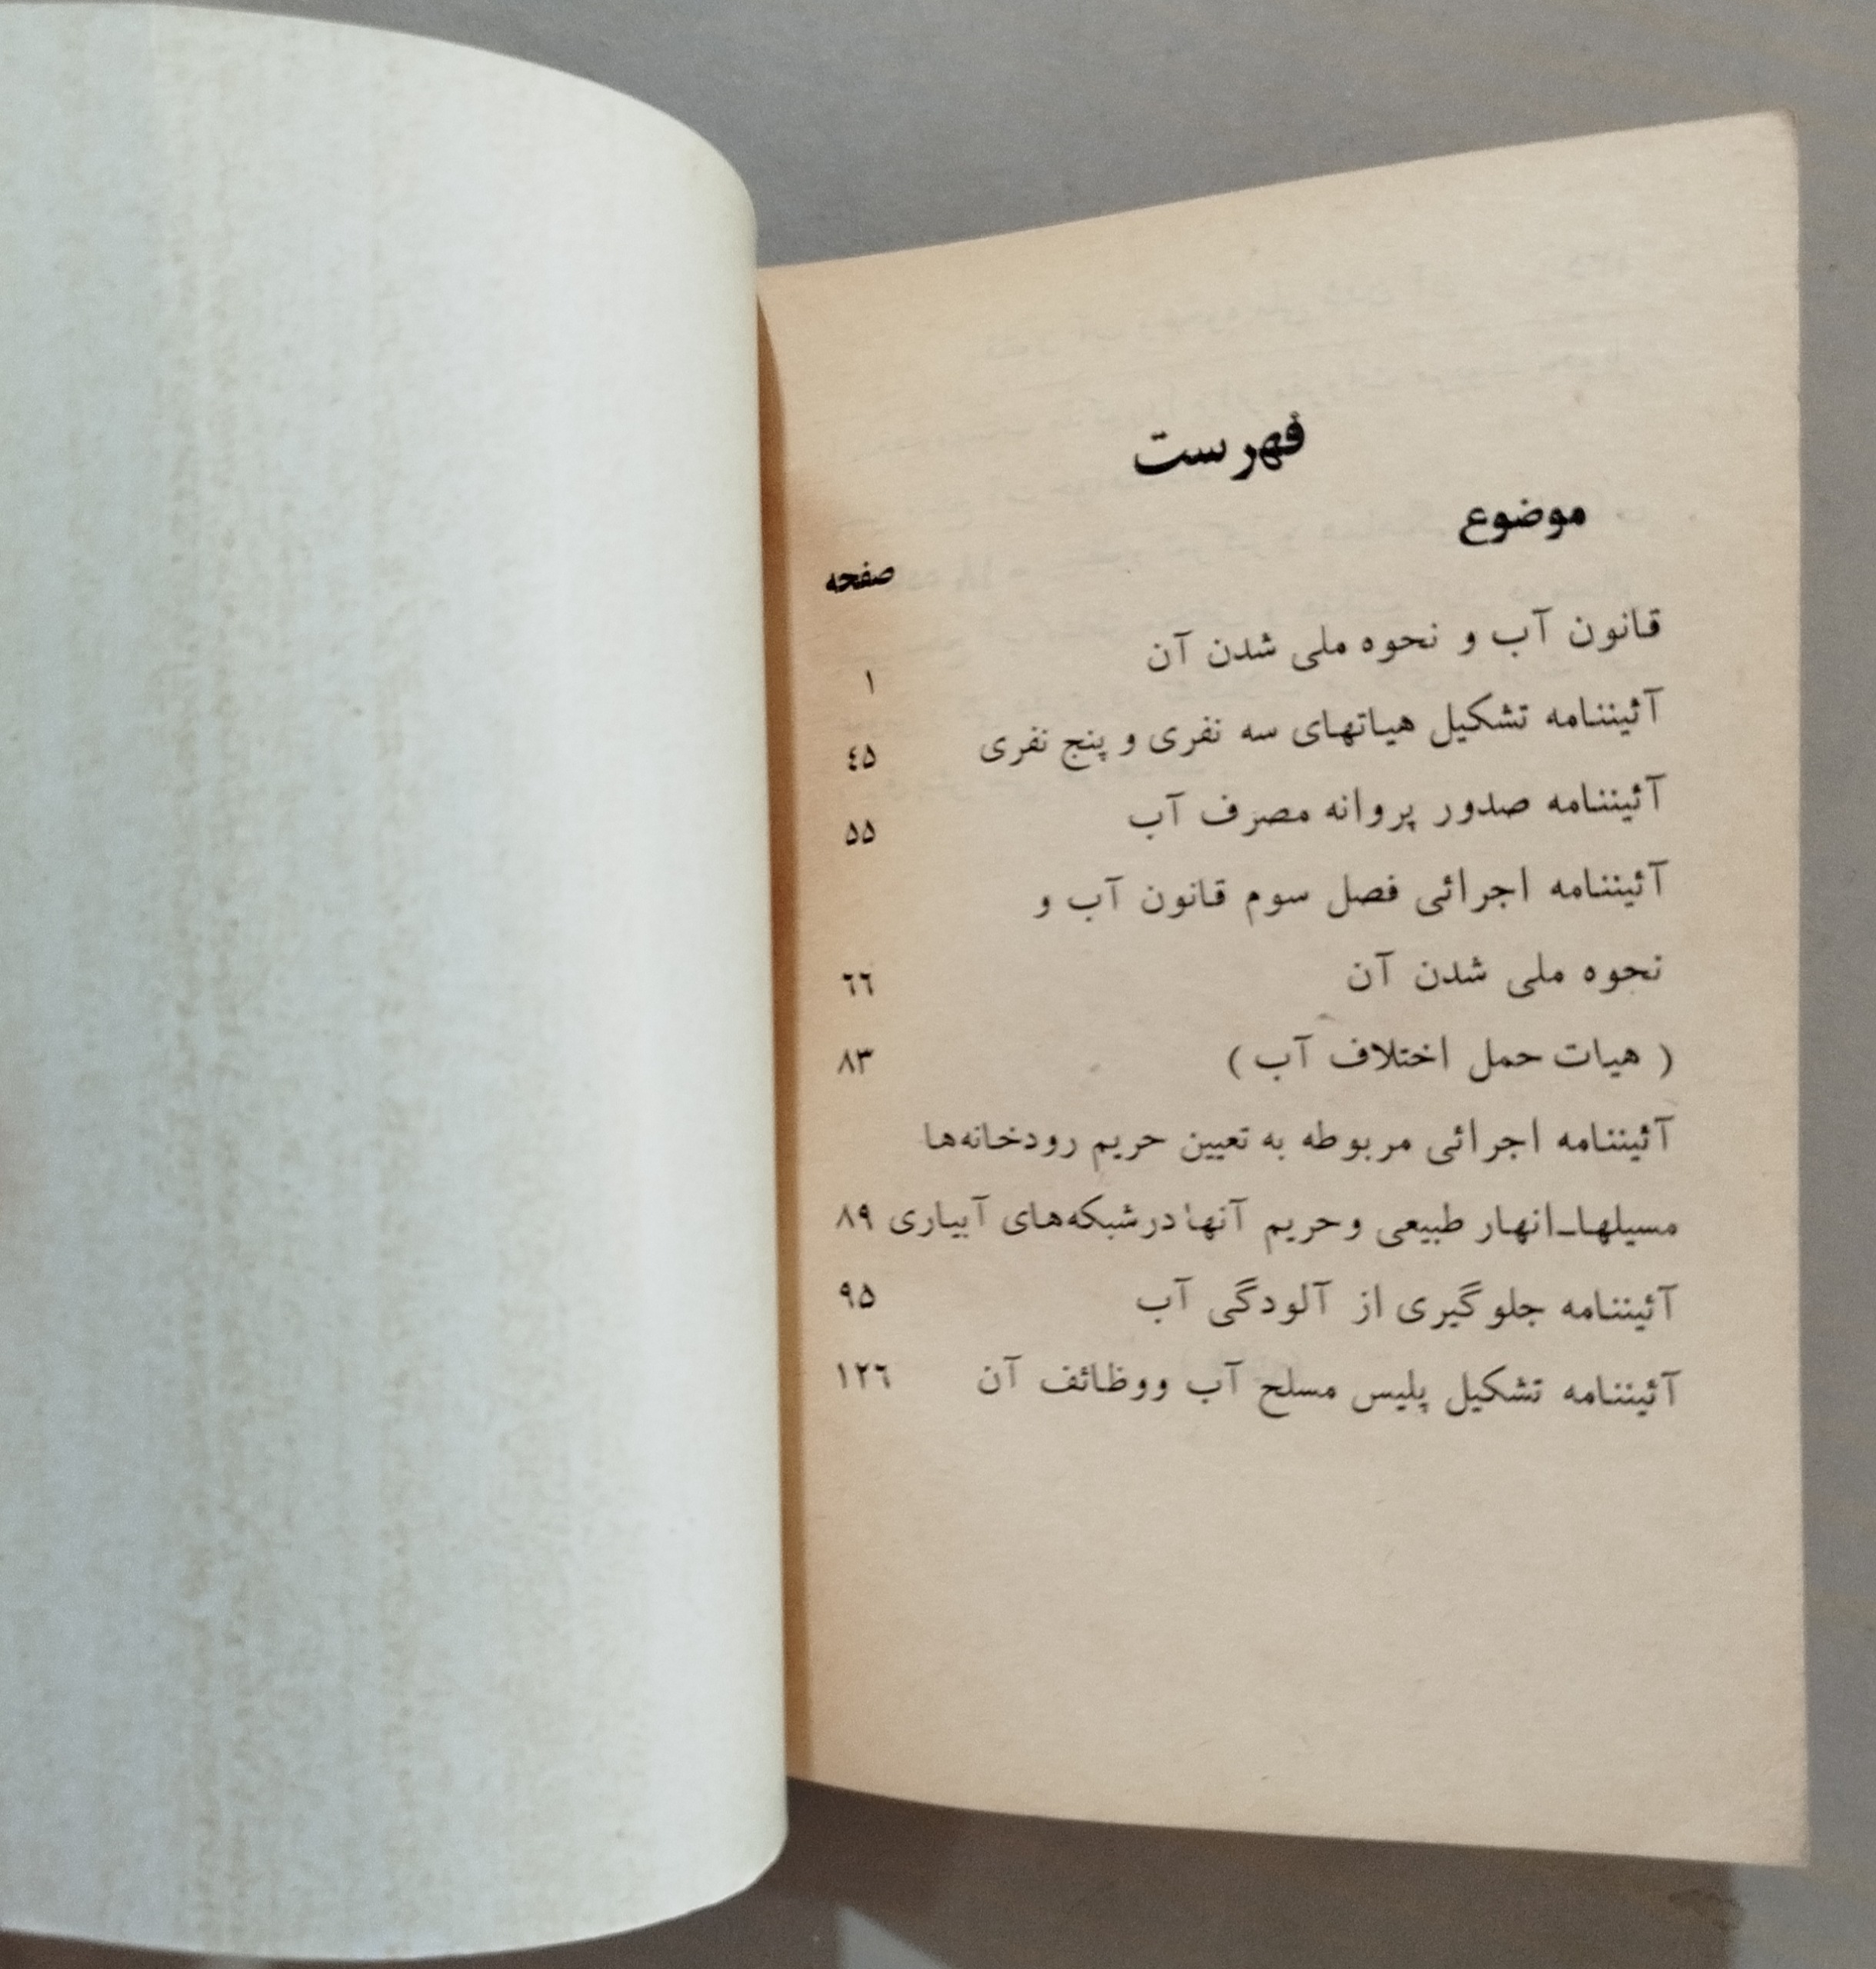 فهرست
موضوع
صفحه
قانون آب و نحوه ملی شدن آن ۱
آئیننامه تشکیل هیاتهای سه نفری و پنج نفری ٤۵
آئیننامه صدور پروانه مصرف آب ۵۵
آئیننامه اجرائی فصل سوم قانون آب و
نحوه ملی شدن آن ٦٦
( هیات حمل اختلاف آب ) ۸۳
آئیننامه اجرائی مربوطه به تعیین حریم رودخانه‌ها
مسیلهاـانهار طبیعی وحریم آنها درشبکه‌های آبیاری ۸۹
آئیننامه جلوگیری از آلودگی آب ۹۵
آئیننامه تشکیل پلیس مسلح آب ووظائف آن ۱۲٦